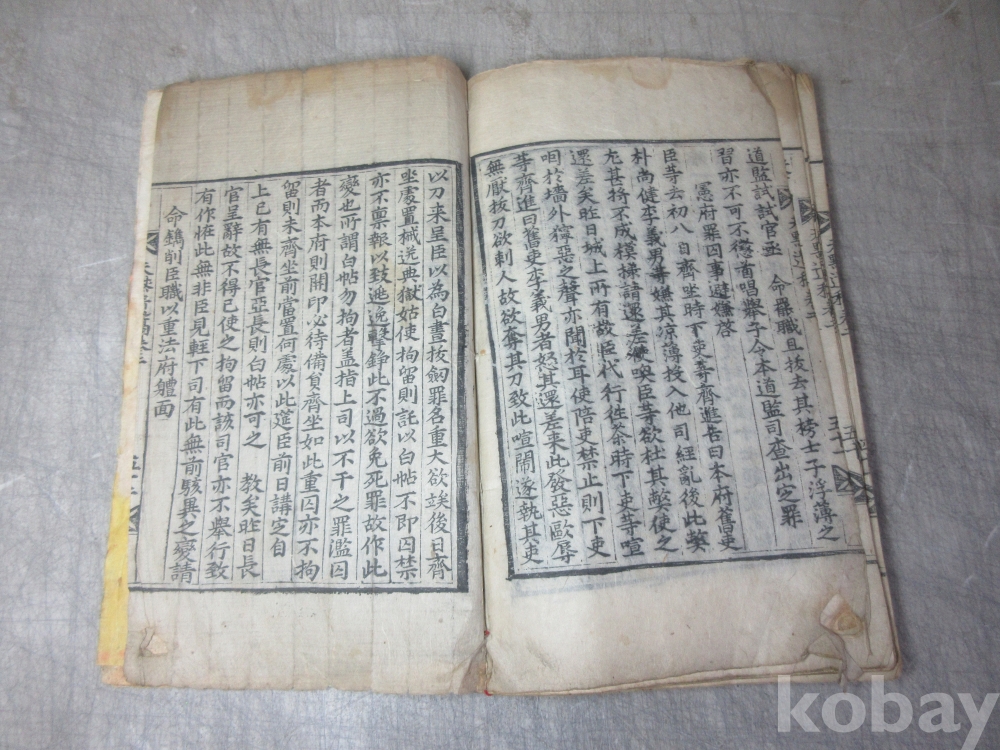 道監試試官並 命罷職且拔去其榜士子浮薄之
習亦不可不懲首唱舉子令本道監司查出定罪
憲府罪囚事避嫌啓
臣等去初八日齊坐時下吏齊進告曰本府舊吏
朴尚健李義男等嫌其凉薄投入他司經亂後此弊
尤甚將不成模㨾請還差使喚臣等欲杜其弊使之
還差矣昨日城上所有故臣代行徃茶時下吏等喧
咽於墻外獰惡之聲亦聞於耳使陪吏禁止則下吏
等齊進曰舊吏李義男者怒其還差来此發惡歐辱
無厭拔刀欲刺人故欲奪其刀致此喧鬧遂執其吏
以刀来呈臣以為白晝拔劒罪名重大欲竢後日齊
坐處置械送典獄姑使拘留則託以白帖不即囚禁
亦不禀報以致逃逸擊錚此不過欲免死罪故作此
變也所謂白帖勿拘者盖指上司以不干之罪濫囚
者而本府則開印必待備貟齊坐如此重囚亦不拘
留則未齊坐前當置何處以此筵臣前日講定自
上已有無長官亞長則白帖亦可之 教矣昨日長
官呈辭故不得已使之拘留而該司官亦不舉行致
有作恠此無非臣見輕下司有此無前駭異之變請
命鐫削臣職以重法府軆面
五十
kobay